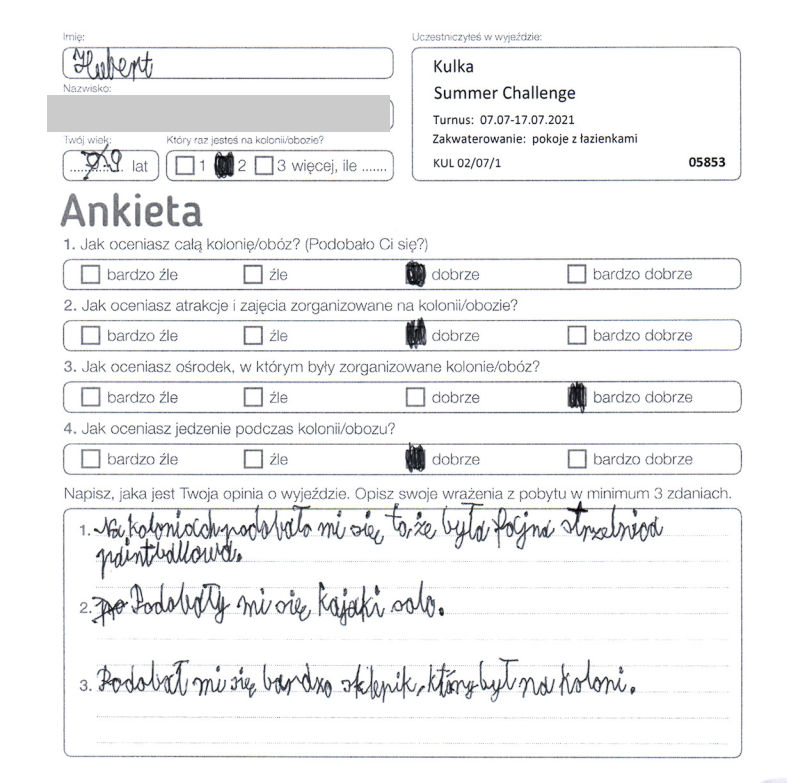 Imię:
Hubert
Nazwisko:
Twój wiek:
9 lat
Który raz jesteś na kolonii/obozie?
1 2 3 więcej, ile .......
Uczestniczyłeś w wyjeździe:
Kulka
Summer Challenge
Turnus: 07.07-17.07.2021
Zakwaterowanie: pokoje z łazienkami
KUL 02/07/1 05853
Ankieta
1. Jak oceniasz całą kolonię/obóz? (Podobało Ci się?)
bardzo źle źle dobrze bardzo dobrze
2. Jak oceniasz atrakcje i zajęcia zorganizowane na kolonii/obozie?
bardzo źle źle dobrze bardzo dobrze
3. Jak oceniasz ośrodek, w którym były zorganizowane kolonie/obóz?
bardzo źle źle dobrze bardzo dobrze
4. Jak oceniasz jedzenie podczas kolonii/obozu?
bardzo źle źle dobrze bardzo dobrze
Napisz, jaka jest Twoja opinia o wyjeździe. Opisz swoje wrażenia z pobytu w minimum 3 zdaniach.
1. Na koloniach podobało mi się to, że była fajna strzelnica
paintballowa.
2. Podobały mi się kajaki solo.
3. Podobał mi się bardzo sklepik, który był na koloni.